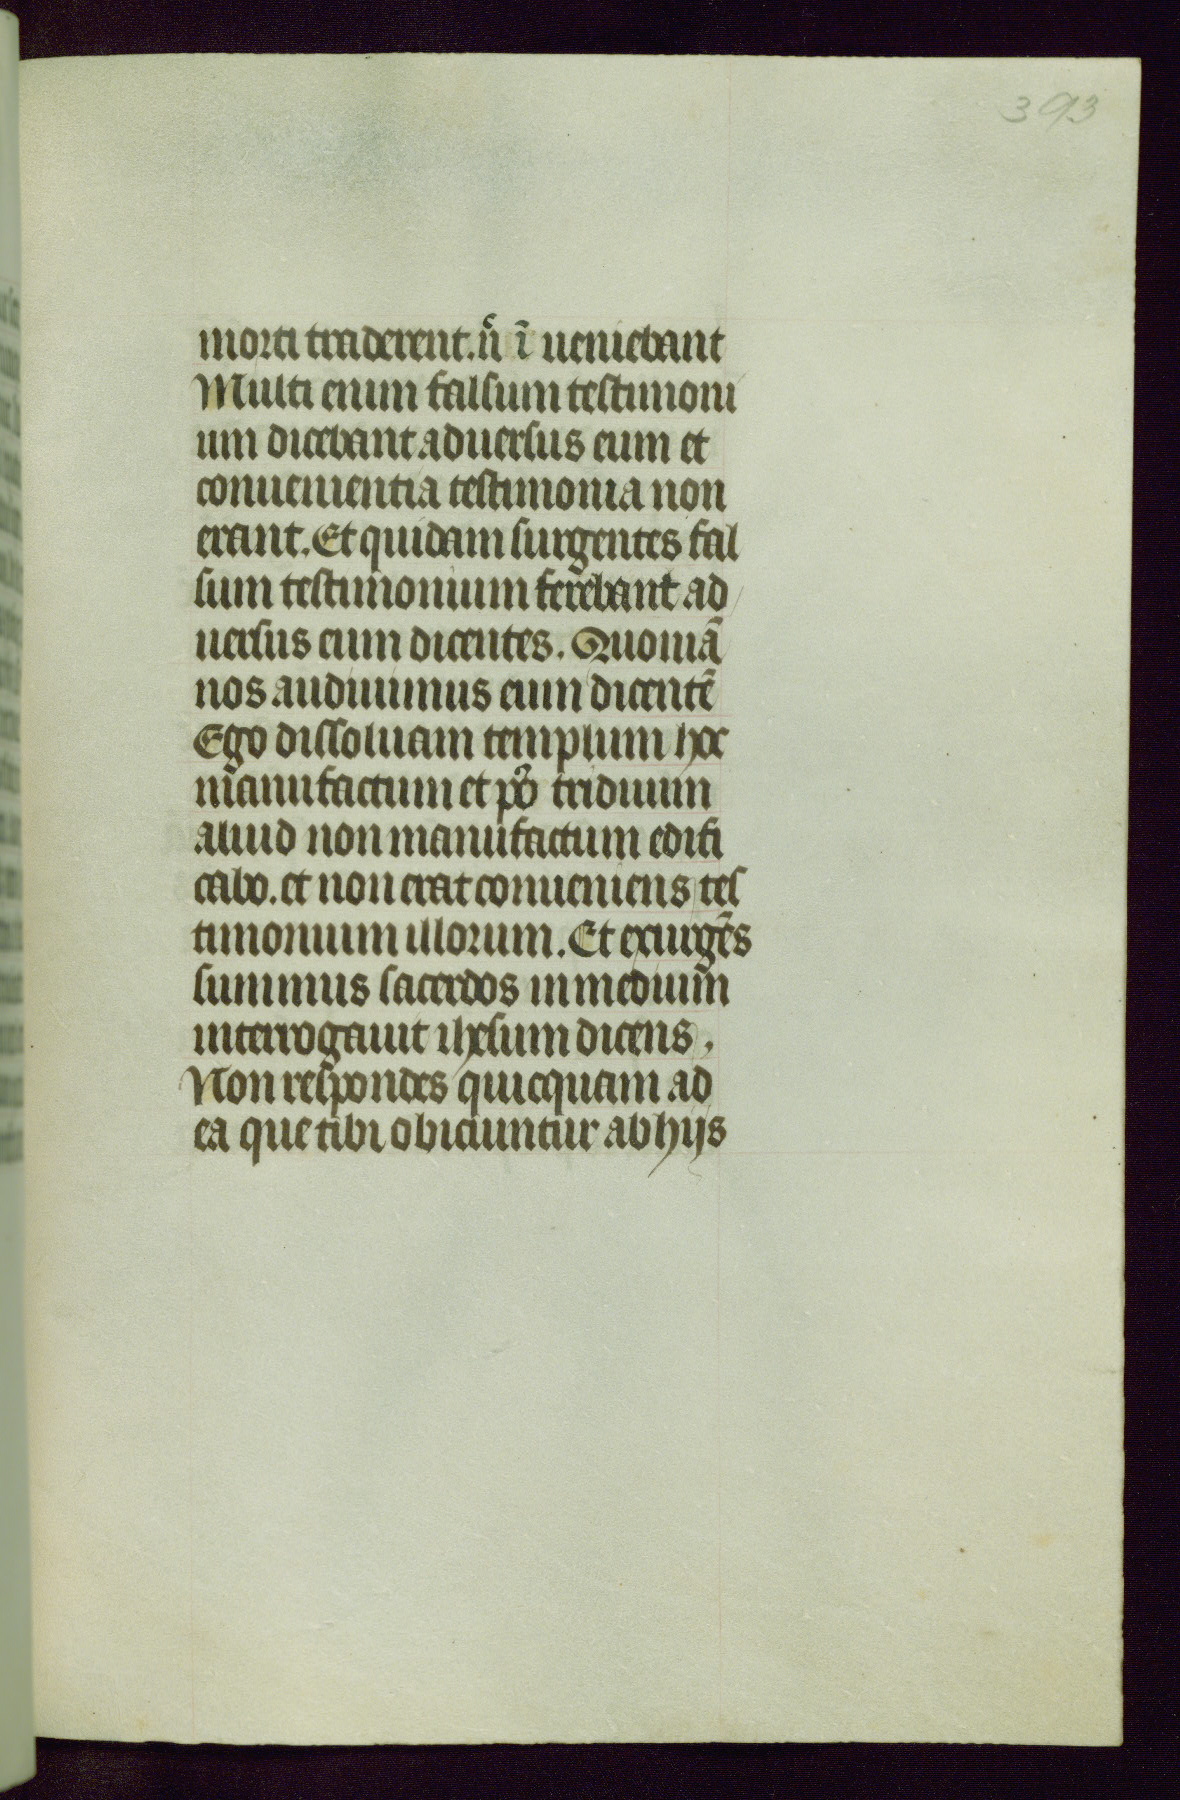 393
morti traderent. n̄ ī ueniebant
Multi enim falsum testimoni
um dicebant aduersus eum et
conuenientia testimonia non
erant. Et quidam surgentes fal
sum testimonium ferebant ad
uersus eum dicentes. Quoniā
nos audiuimus eum dicentē
Ego dissoluam templum hoc
manufactum et post triduum
aliud non manufactum edifi
cabo. et non erat conueniens tes
timonium illorum. Et exurgēs
summus sacerdos in medium
interrogauit ihesum dicens.
Non respondes quicquam ad
ea que tibi obiciuntur ab hijs